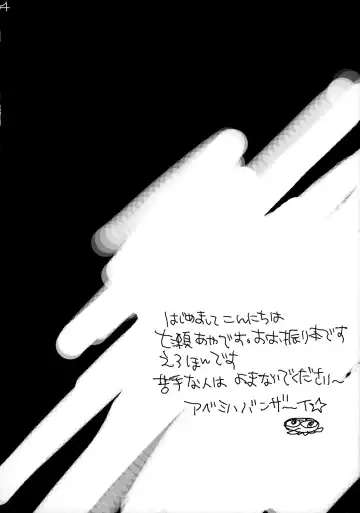 4
はじめましてこんにちは
七瀬あやです。おお振り本です
えろほんです
苦手な人は よまないでくださり〜
アベミハバンザーイ☆